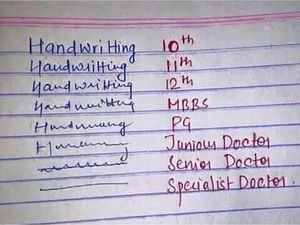 Handwriting 10th
Handwriting 11th
Handwriting 12th
Handwriting MBBS
PG
Junior Doctor
Senior Doctor
Specialist Doctor